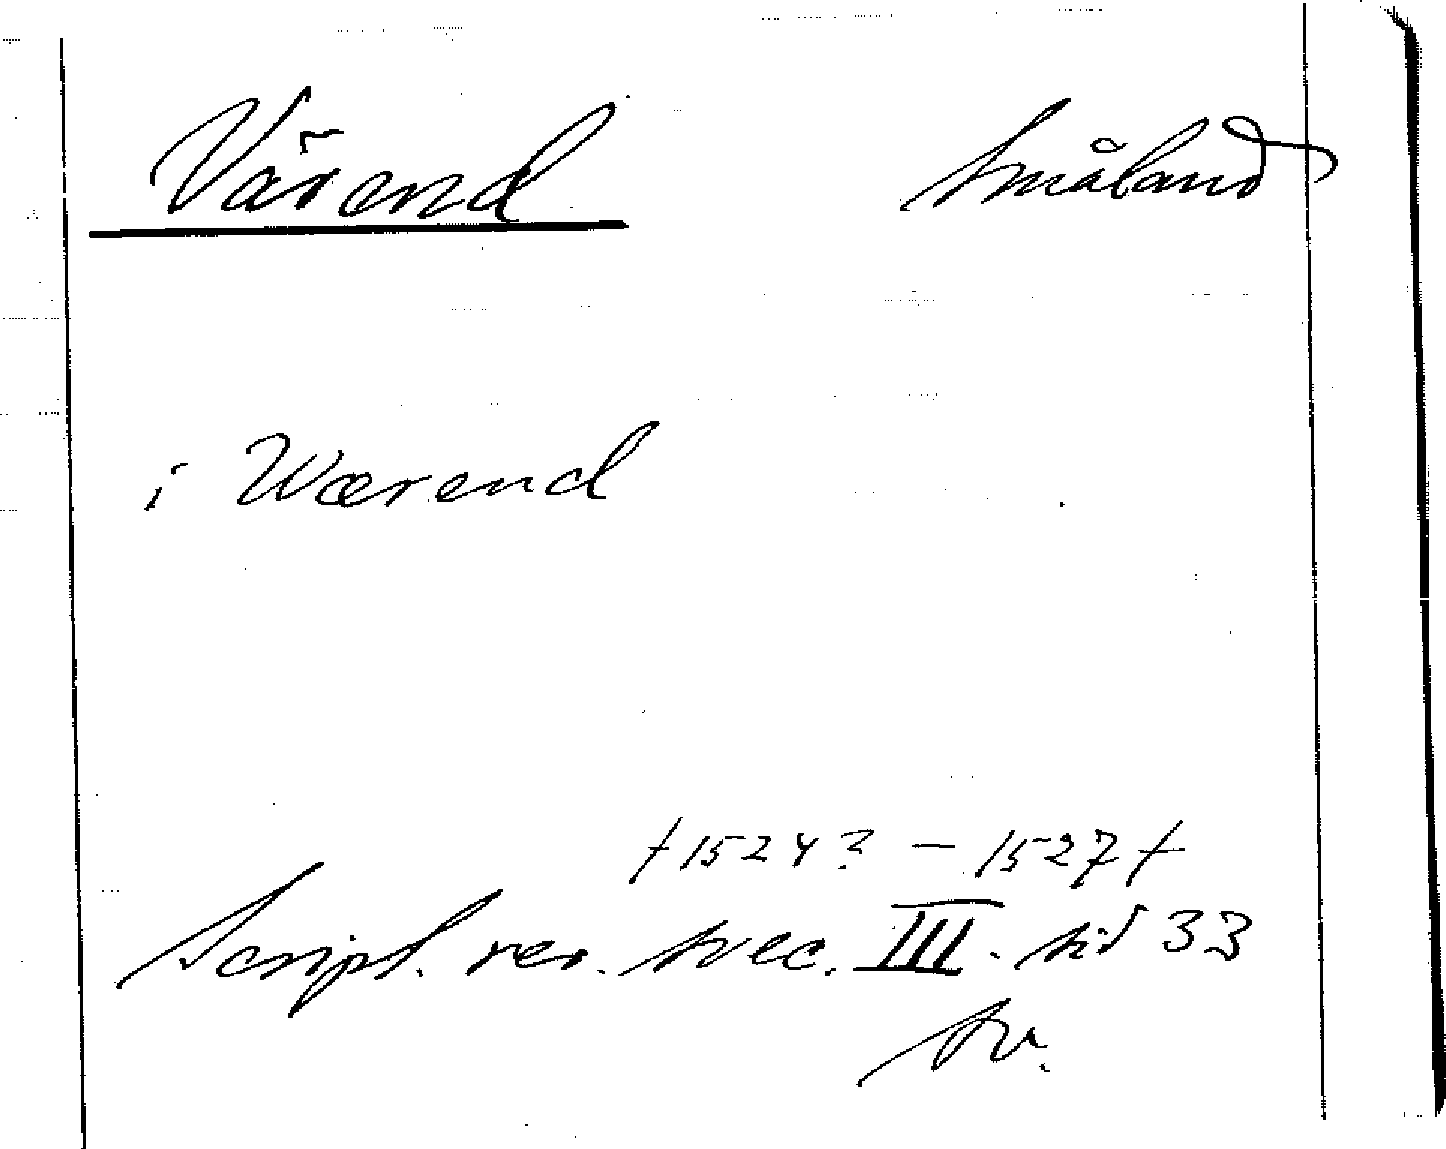 Värend Småland
i Wærend
/1524? - 1527/
Script. rer. svec. III. sid 33
sv.